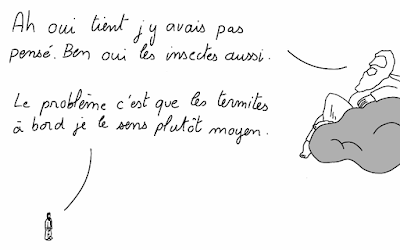 Ah oui tient j'y avais pas
pensé. Ben oui les insectes aussi.
Le problème c'est que les termites
à bord je le sens plutôt moyen.